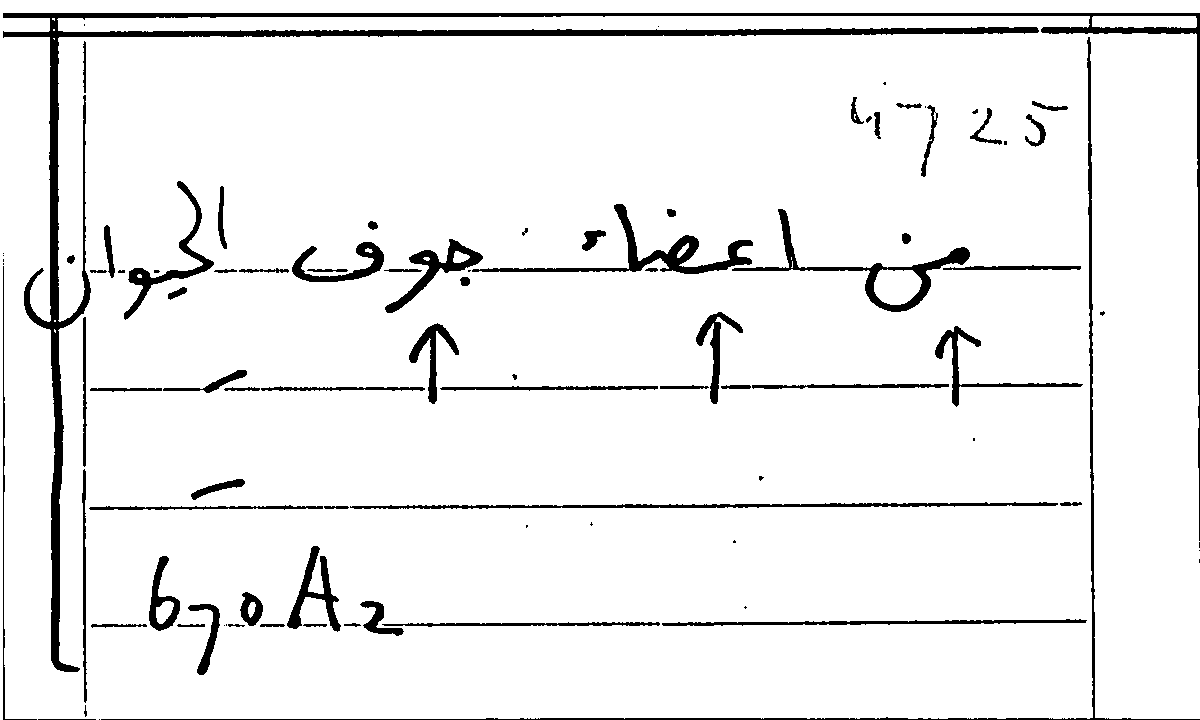 4725
من اعضاء جوف الحيوان
↑ ↑ ↑
670A2